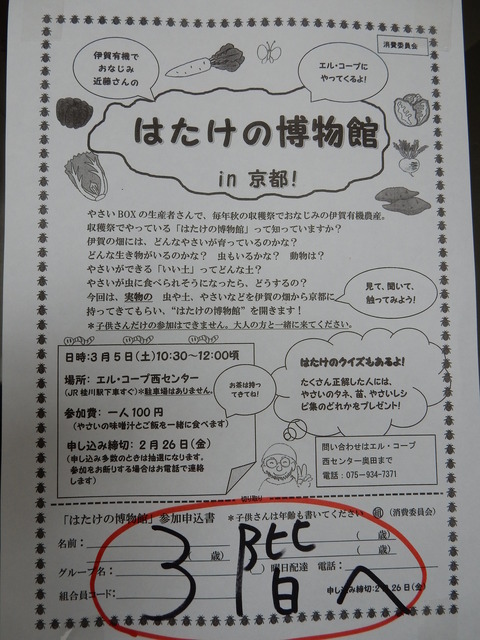 消費委員会
伊賀有機で
おなじみ
近藤さんの
エル・コープに
やってくるよ!
はたけの博物館
in 京都!
やさいBOXの生産者さんで、毎年秋の収穫祭でおなじみの伊賀有機農産。
収穫祭でやっている「はたけの博物館」って知っていますか?
伊賀の畑には、どんなやさいが育っているのかな?
どんな生き物がいるのかな? 虫もいるかな? 動物は?
やさいができる「いい土」ってどんな土?
やさいが虫に食べられそうになったら、どうするの?
今回は、実物の 虫や土、やさいなどを伊賀の畑から京都に
持ってきてもらい、“はたけの博物館”を開きます!
*子供さんだけの参加はできません。大人の方と一緒に来てください。
見て、聞いて、
触ってみよう!
日時:3月5日(土)10:30~12:00頃
場所: エル・コープ西センター
(JR桂川駅下車すぐ)*駐車場はありません。
参加費: 一人100円
(やさいの味噌汁とご飯を一緒に食べます)
申し込み締切: 2月26日(金)
(申し込み多数のときは抽選になります。
参加をお断りする場合はお電話で連絡
します)
お茶は持っ
てきてね!
はたけのクイズもあるよ!
たくさん正解したんには、
やさいのタネ、苗、やさいレシ
ピ集のどれかをプレゼント!
問い合わせはエル・コープ
西センター奥田まで
電話:075-934-7371
切り取り
「はたけの博物館」参加申込書 *子供さんは年齢も書いてください (消費委員会)
名前: ( 歳)
歳) ( 歳)
グループ名: ( )曜日配達 電話:
組合員コード: 申し込み締切:2月26日(金)
3階へ